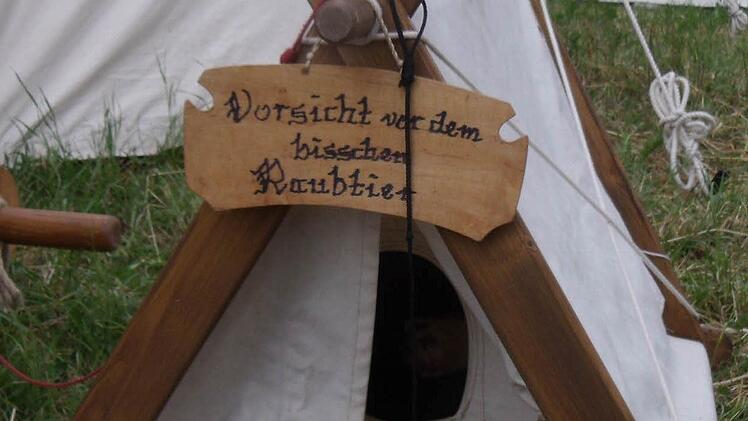 Vorsicht vor dem
bisschen
Raubtier